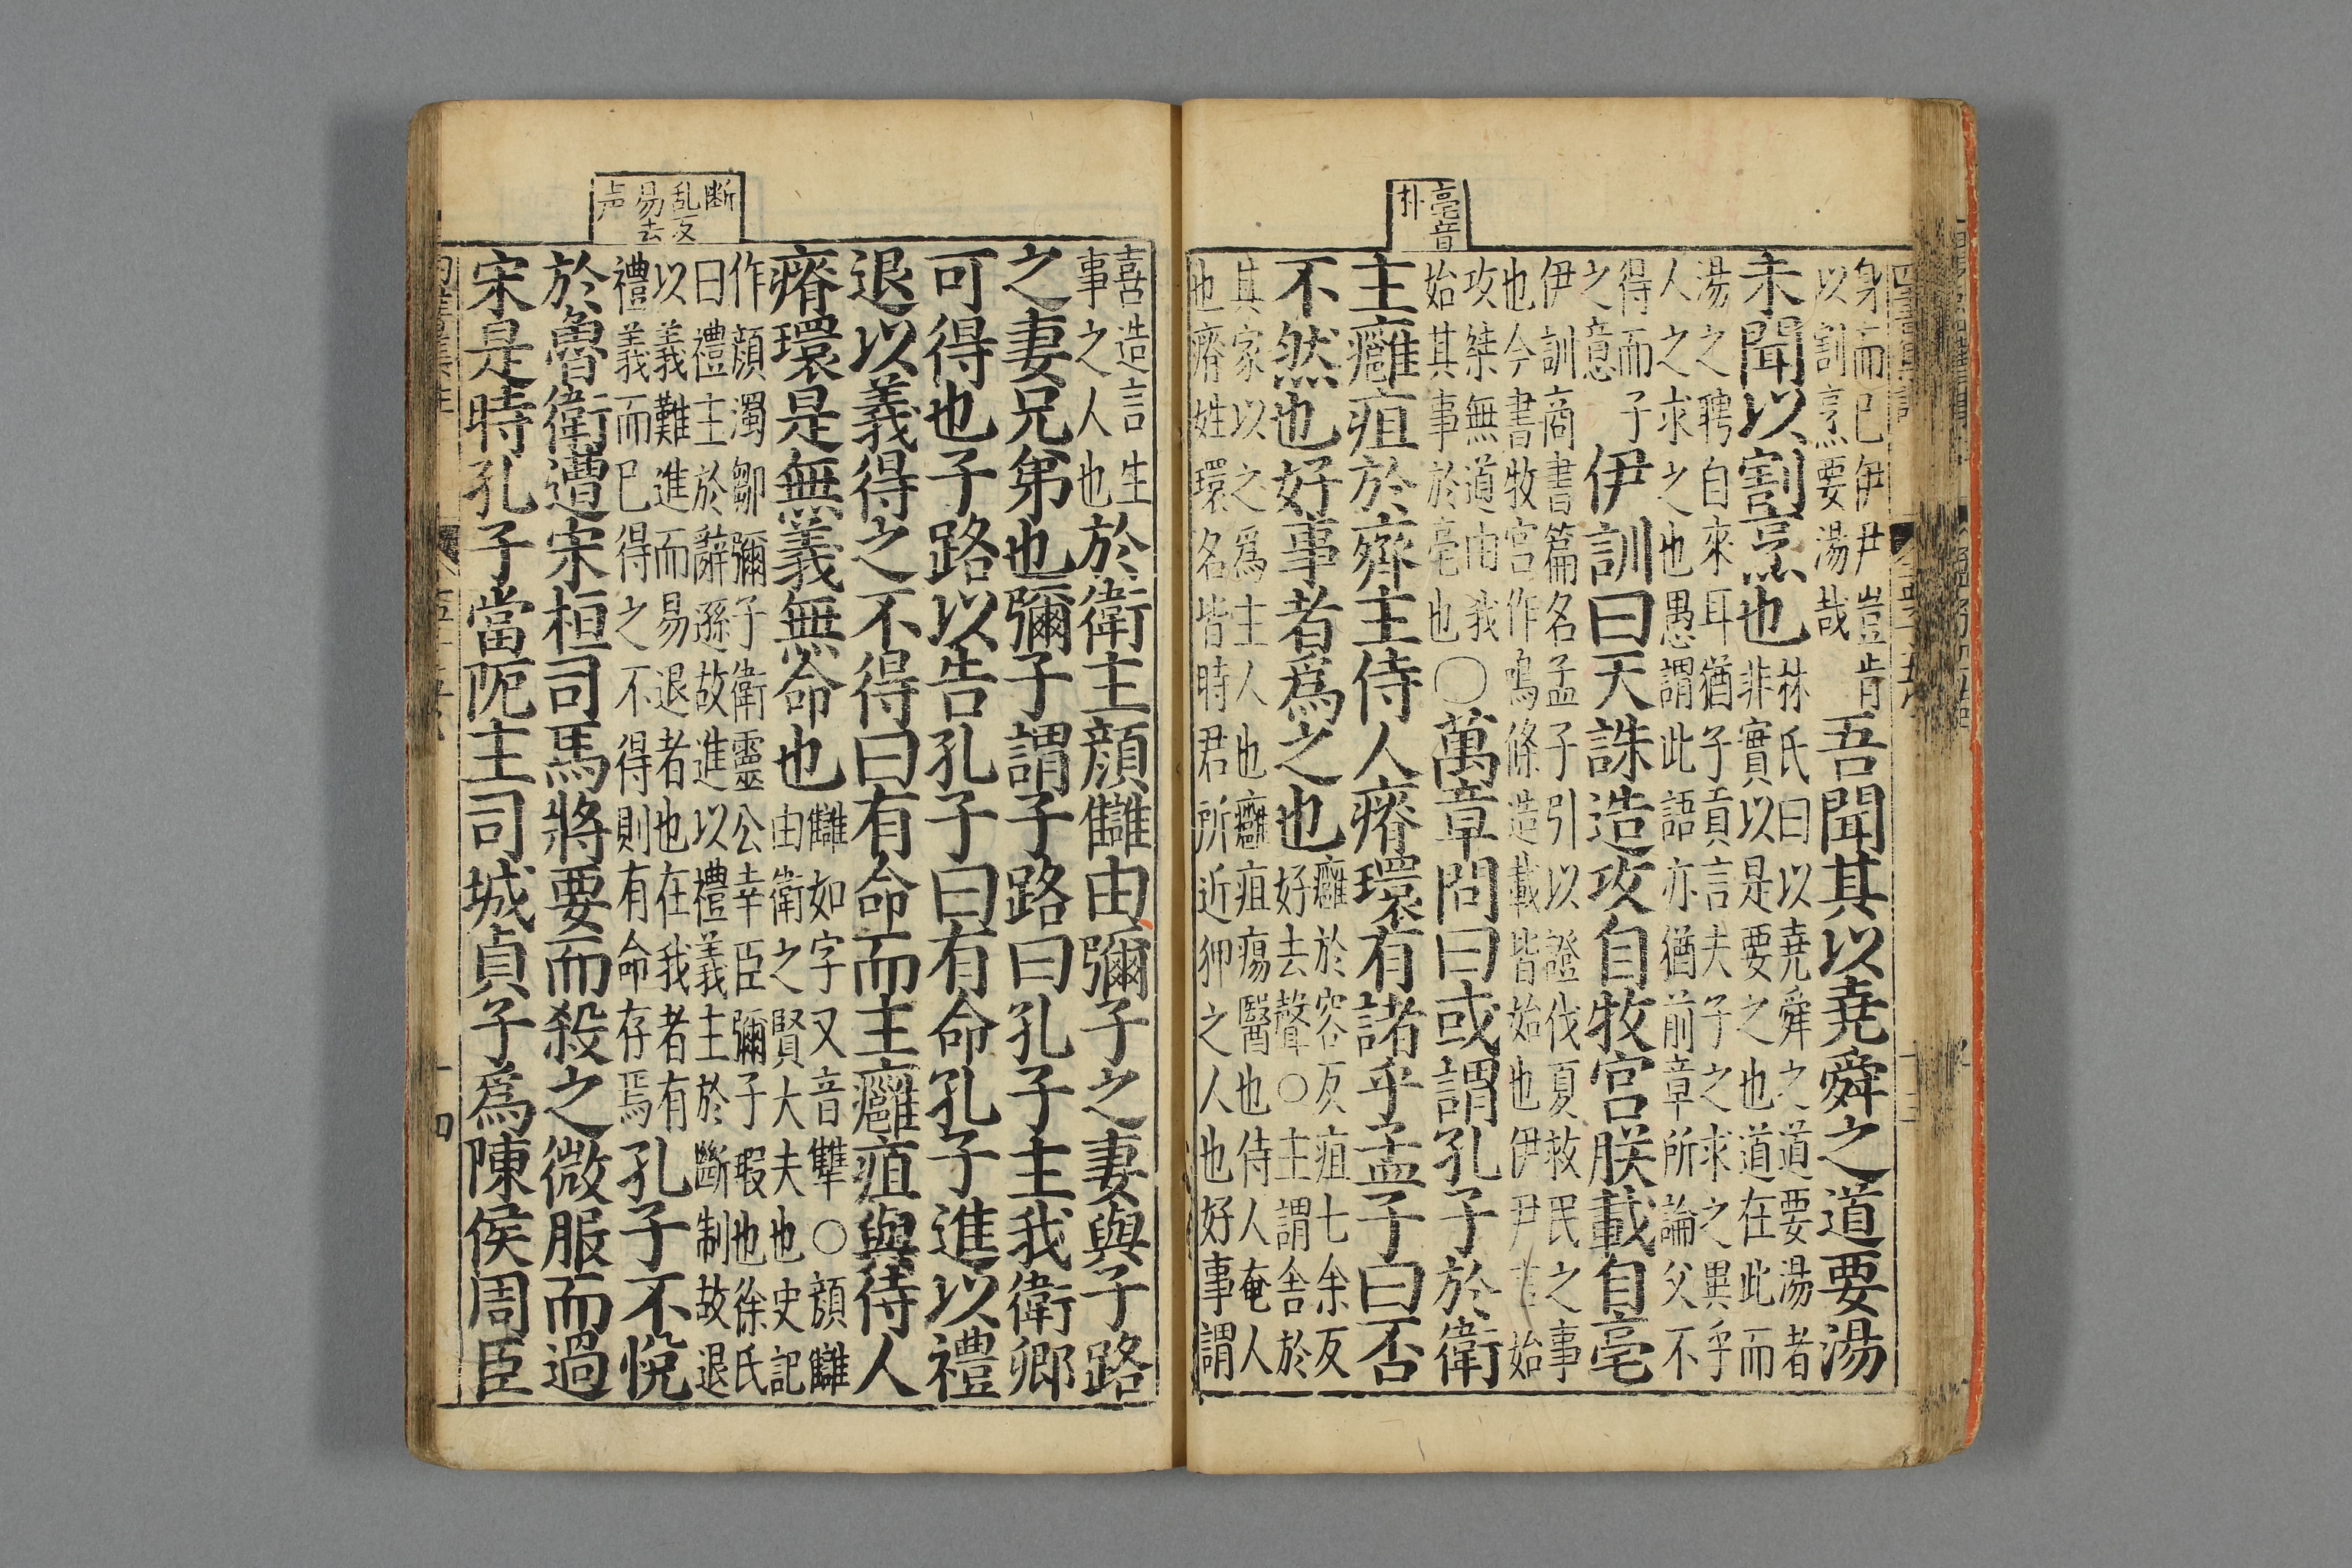 亳音
朴
身而已伊尹豈肯
以割烹要湯哉
吾聞其以堯舜之道要湯
未聞以割烹也
林氏曰以堯舜之道要湯者
非實以是要之也道在此而
湯之聘自來耳猶子貢言夫子之求之異乎
人之求之也愚謂此語亦猶前章所論父不
得而子
之意
伊訓曰天誅造攻自牧宮朕載自亳
伊訓商書篇名孟子引以證伐夏救民之事
也今書牧宮作鳴條造載皆始也伊尹言始
攻桀無道由我
始其事於亳也
○萬章問曰或謂孔子於衛
主癰疽於齊主侍人瘠環有諸乎孟子曰否
不然也好事者爲之也
癰於容反疽七余反
好去聲○主謂舍於
其家以之爲主人也癰疽瘍醫也侍人奄人
也瘠姓環名皆時君所近狎之人也好事謂
断
乱反
易去
声
喜造言生
事之人也
於衛主顔讎由彌子之妻與子路
之妻兄弟也彌子謂子路曰孔子主我衛卿
可得也子路以告孔子曰有命孔子進以禮
退以義得之不得曰有命而主癰疽與侍人
瘠環是無義無命也
讎如字又音犨○顔讎
由衛之賢大夫也史記
作顔濁鄒彌子衛靈公幸臣彌子瑕也徐氏
曰禮主於辭遜故進以禮義主於斷制故退
以義難進而易退者也在我者有
禮義而已得之不得則有命存焉
孔子不悅
於魯衛遭宋桓司馬將要而殺之微服而過
宋是時孔子當阨主司城貞子爲陳侯周臣